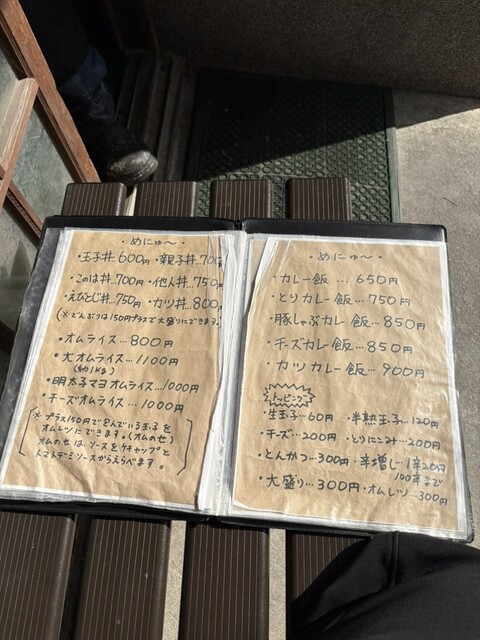 ・めにゅ〜・
・玉子丼..600円 ・親子丼..700円
・このは丼..700円 ・他人丼..750円
・えびとじ丼..750円 ・カツ丼..800円
(※どんぶりは150円プラスで大盛りにできます。)
・オムライス…800円
・大オムライス…1100円
(約1kg)
・明太子マヨオムライス…1000円
・チーズオムライス…1000円
※プラス150円で包んでいる玉子を
オムレツにできます。(オムのせ)
オムのせは、ソースをケチャップと
トマトデミソースからえらべます。
・めにゅ〜・
・カレー飯…650円
・とりカレー飯…750円
・豚しゃぶカレー飯…850円
・チーズカレー飯…850円
・カツカレー飯…900円
トッピング
・生玉子…60円 ・半熟玉子…120円
・チーズ…200円 ・とりにこみ…200円
・とんかつ…300円 ・辛増し 1辛20円
100辛まで
・大盛り…300円 ・オムレツ…300円